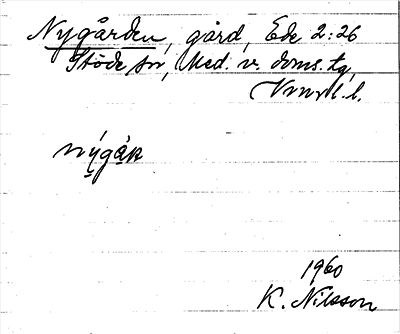 Nygården, gård, Ede 2:26
Stöde sn, Med. v. doms. tg,
Vnrl. l.
nýgạ́ṇ
1960
K. Nilsson